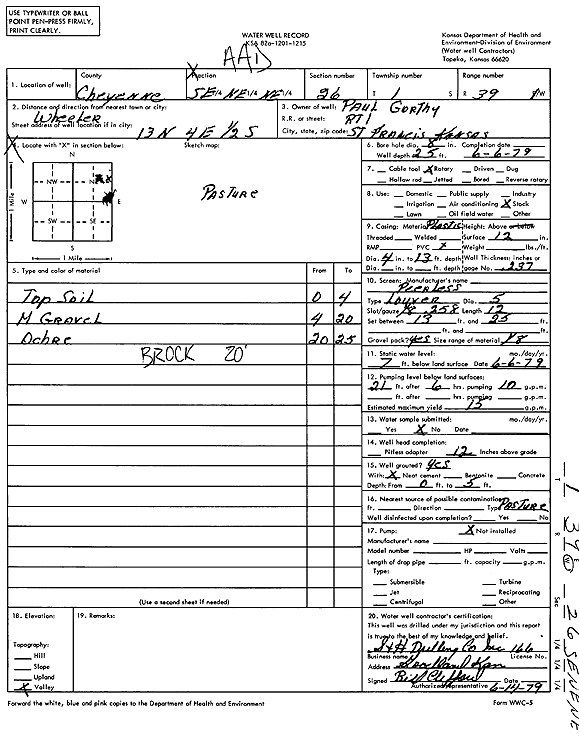 USE TYPEWRITER OR BALL
POINT PEN-PRESS FIRMLY,
PRINT CLEARLY.
WATER WELL RECORD
KSA 82a-1201-1215
Kansas Department of Health and
Environment-Division of Environment
(Water well Contractors)
Topeka, Kansas 66620
AAD
1. Location of well:
County
Cheyenne
Fraction
SE 1/4 NE 1/4 NE 1/4
Section number
26
Township number
T 1 S
Range number
R 39 W
2. Distance and direction from nearest town or city:
Wheeler
Street address of well location if in city:
13 N 4E 1/2 S
3. Owner of well: PAUL Gorthy
R.R. or street: RT 1
City, state, zip code: ST Francis Kansas
4. Locate with "X" in section below:
Sketch map:
N
NW NE
W E
SW SE
S
1 Mile
1 Mile
PASTURE
5. Type and color of material From To
Top Soil 0 4
M Gravel 4 20
Ochre 20 25
BROCK 20'
(Use a second sheet if needed)
6. Bore hole dia. 8 in. Completion date
Well depth 25 ft. 6-6-79
7. Cable tool X Rotary Driven Dug
Hollow rod Jetted Bored Reverse rotary
8. Use: Domestic Public supply Industry
Irrigation Air conditioning X Stock
Lawn Oil field water Other
9. Casing: Material Plastic Height: Above or below
Threaded Welded Surface 12 in.
RMP PVC X Weight lbs./ft.
Dia. 4 in. to 13 ft. depth Wall Thickness: inches or
Dia. in. to ft. depth gage No. .237
10. Screen: Manufacturer's name
Peerless
Type Louver Dia. 5
Slot/gauze 1/8 .258 Length 12
Set between 13 ft. and 25 ft.
ft. and ft.
Gravel pack? yes Size range of material 1/8
11. Static water level: mo./day/yr.
7 ft. below land surface Date 6-6-79
12. Pumping level below land surfaces:
21 ft. after 6 hrs. pumping 10 g.p.m.
ft. after hrs. pumping g.p.m.
Estimated maximum yield 15 g.p.m.
13. Water sample submitted: mo./day/yr.
Yes X No Date
14. Well head completion:
Pitless adapter 12 Inches above grade
15. Well grouted? yes
With: X Neat cement Bentonite Concrete
Depth: From 0 ft. to 5 ft.
16. Nearest source of possible contamination:
ft. Direction Type PASTURE
Well disinfected upon completion? Yes No
17. Pump: X Not installed
Manufacturer's name
Model number HP Volts
Length of drop pipe ft. capacity g.p.m.
Type:
Submersible Turbine
Jet Reciprocating
Centrifugal Other
18. Elevation:
Topography:
Hill
Slope
Upland
X Valley
19. Remarks:
20. Water well contractor's certification:
This well was drilled under my jurisdiction and this report
is true to the best of my knowledge and belief.
S&H Drilling Co Inc 166
Business name License No.
Address Goodland Kan
Signed Bill Clifford 6-14-79
Authorized Representative
Forward the white, blue and pink copies to the Department of Health and Environment
Form WWC-5
T 1 R 39 E W Sec 26 SE NE NE
1/4 1/4 1/4